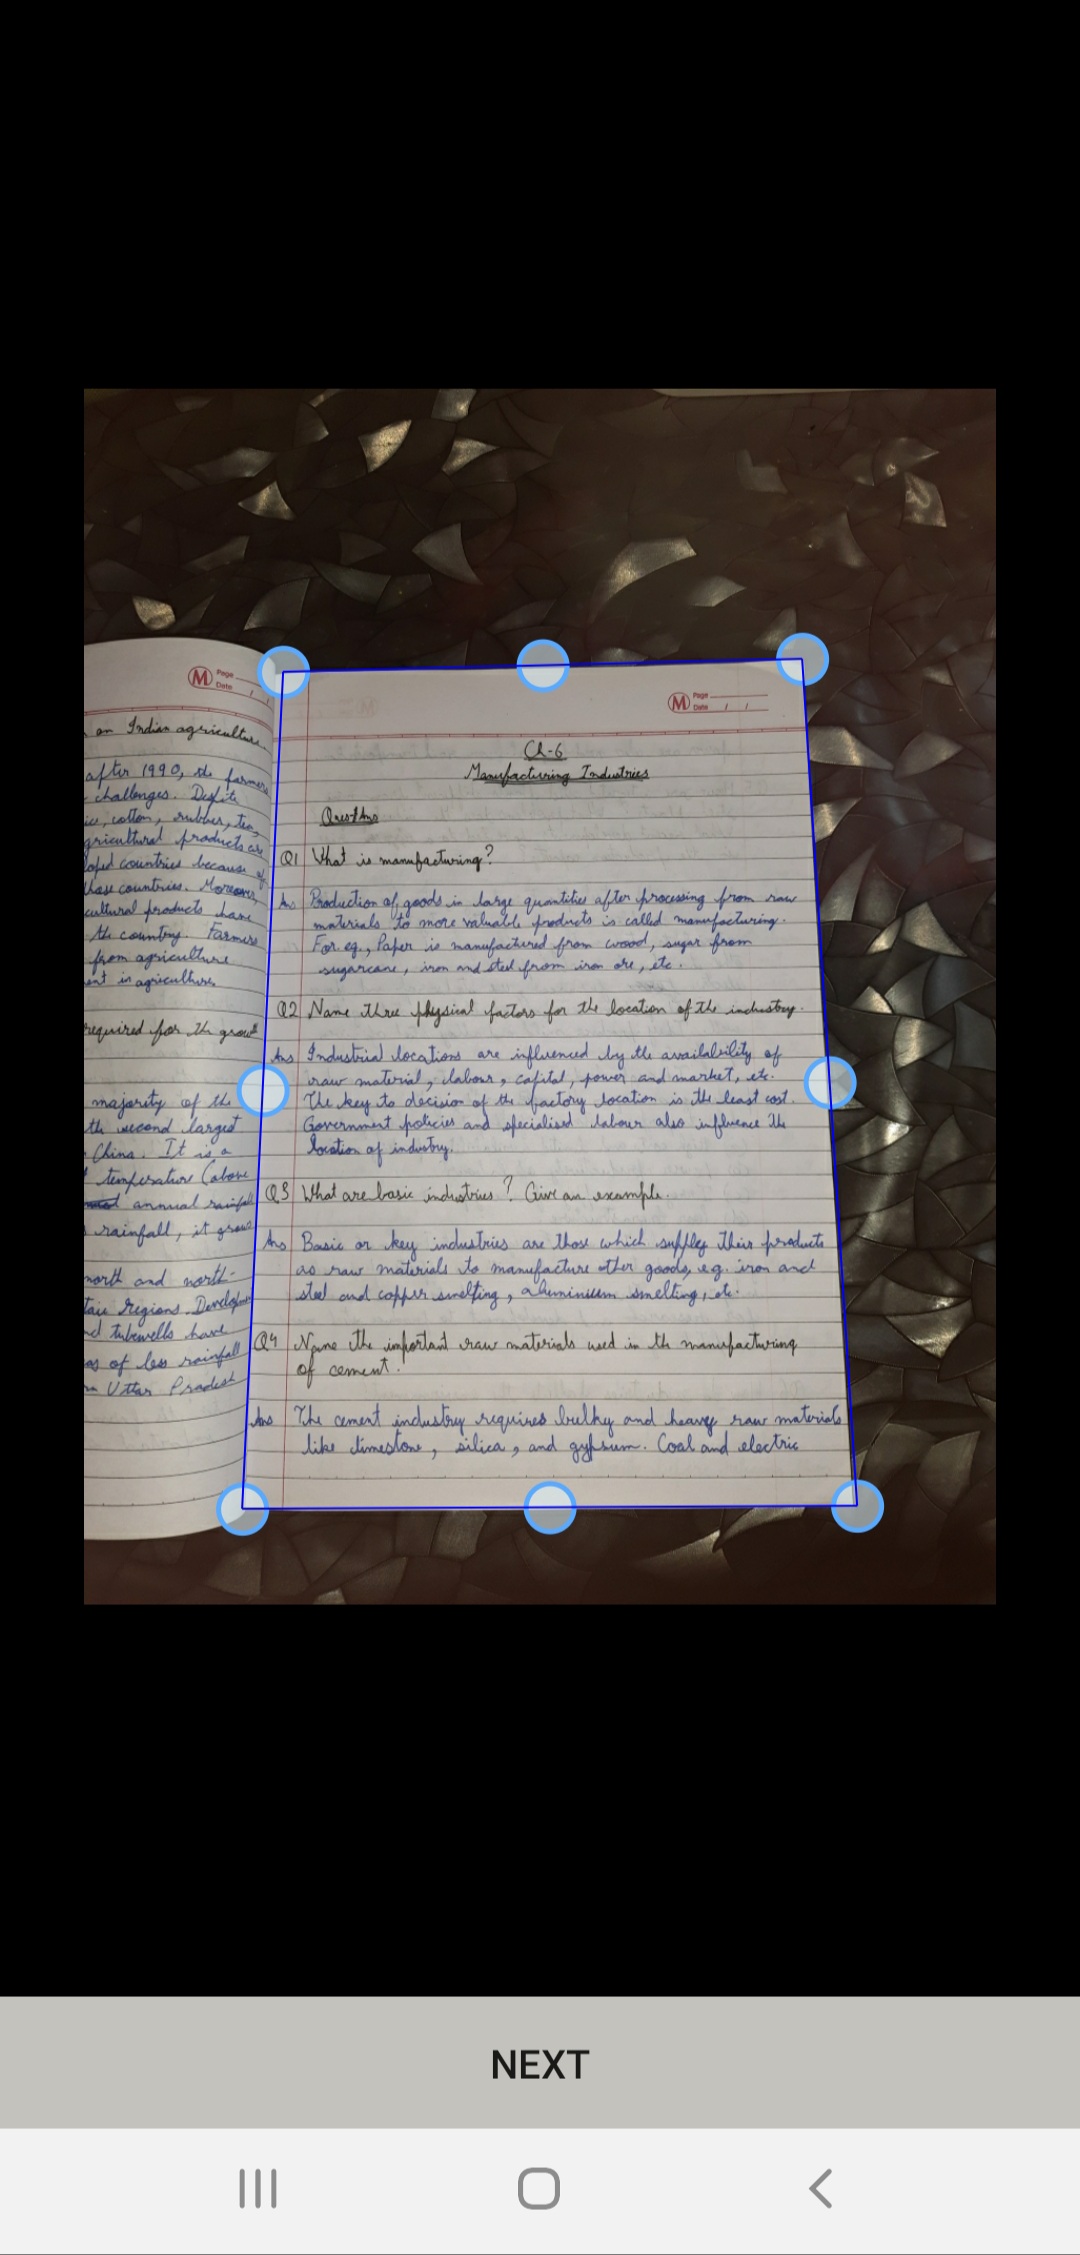 M Page
Date / /
on Indian agriculture
after 1990, the farmers
challenges. Despite
ice, cotton, rubber, tea,
gricultural products are
loped countries because of
those countries. Moreover,
cultural products have
the country. Farmers
from agriculture
ent in agriculture.
required for the growth
majority of the
the second largest
China. It is a
temperature (above
annual rainfall
rainfall, it grows
north and north-
taic regions. Development
nd tubewells have
as of less rainfall
rn Uttar Pradesh
M Page
Date / /
Ch-6
Manufacturing Industries
Ques/Ans
Q1 What is manufacturing?
Ans Production of goods in large quantities after processing from raw
materials to more valuable products is called manufacturing.
For eg., Paper is manufactured from wood, sugar from
sugarcane, iron and steel from iron ore, etc.
Q2 Name three physical factors for the location of the industry.
Ans Industrial locations are influenced by the availability of
raw material, labour, capital, power and market, etc.
The key to decision of the factory location is the least cost.
Government policies and specialised labour also influence the
location of industry.
Q3 What are basic industries? Give an example.
Ans Basic or key industries are those which supply their products
as raw materials to manufacture other goods, e.g. iron and
steel and copper smelting, aluminium smelting, etc.
Q4 Name the important raw materials used in the manufacturing
of cement.
Ans The cement industry requires bulky and heavy raw materials
like limestone, silica, and gypsum. Coal and electric
NEXT